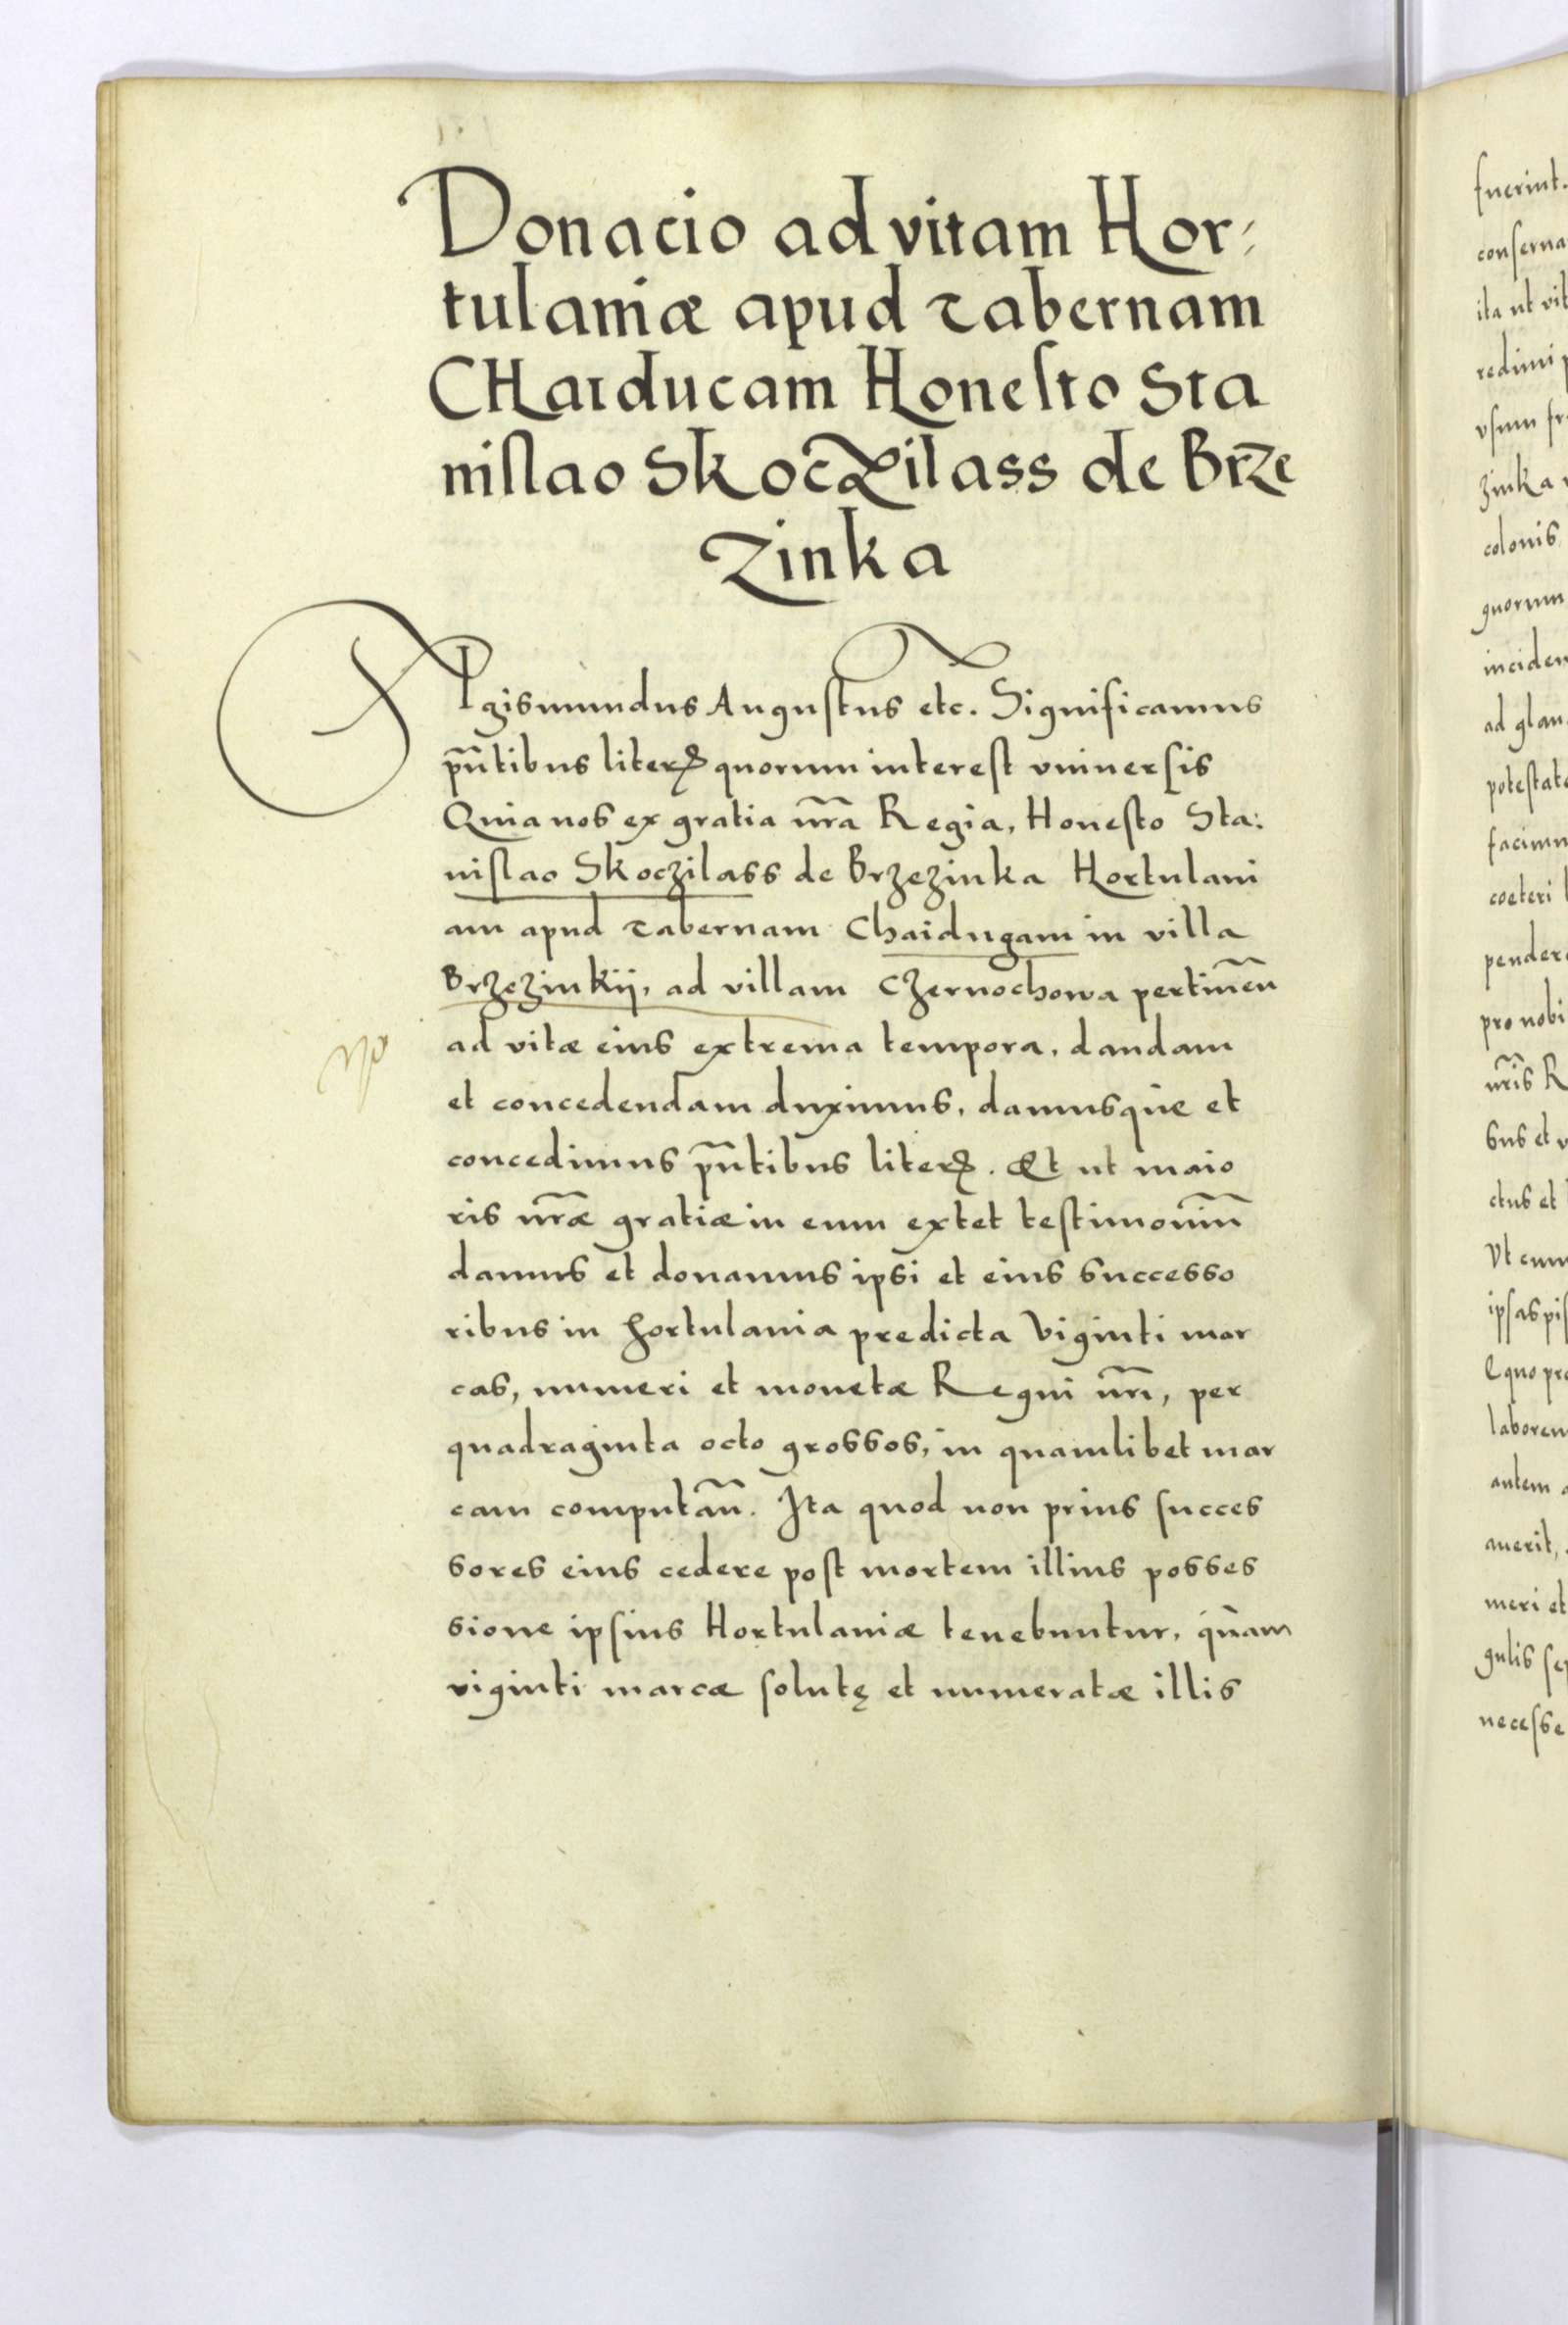 Donacio ad vitam Hor⸗
tulaniæ apud tabernam
CHaiducam Honesto Sta
nislao Skoczilass de Brze
zinka
SIgismundus Augustus etc. Significamus
pn̄tibus literꝭ quorum interest vniuersis
Quia nos ex gratia nr̄a Regia, Honesto Sta:
nislao Skoczilass de Brzezinka Hortulani
am apud tabernam Chaidugam in villa
Brzezinkij, ad villam Czernochowa pertineñ
ad vitæ eius extrema tempora, dandam
et concedendam duximus, damusque et
concedimus pn̄tibus literꝭ. Et ut maio
ris nr̄æ gratiæ in eum extet testimoniū
damus et donamus ipsi et eius successo
ribus in hortulania predicta Viginti mar
cas, numeri et monetæ Regni nr̄i, per
quadraginta octo grossos, in quamlibet mar
cam computan̄. Ita quod non prius succes
sores eius cedere post mortem illius posses
sione ipsius Hortulaniæ tenebuntur, quàm
viginti marcæ solutę et numeratæ illis
fuerint.
conserua
ita ut vit
redimi p
vsum fr
zinka
colonis
quorum
inciden
ad glan
potestat
facimu
coeteri
pender
pro nobi
nr̄is R
sus et v
ctus et
Vt cum
ipsas pis
Equo pr
laborem
autem
auerit,
meri et
gulis se
necesse